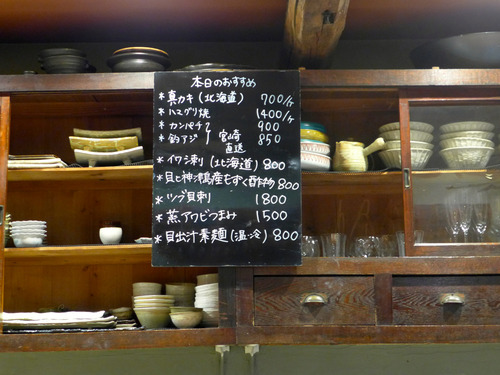 本日のおすすめ
*真カキ(北海道) 700/ケ
*ハマグリ焼 1400/ケ
*カンパチ 宮崎 900
*釣アジ 直送 850
*イワシ刺(北海道) 800
*貝と神 産もずく酢 800
*ツブ貝刺 1800
*蒸アワビつまみ 1500
*貝出汁素麺(温・冷) 800